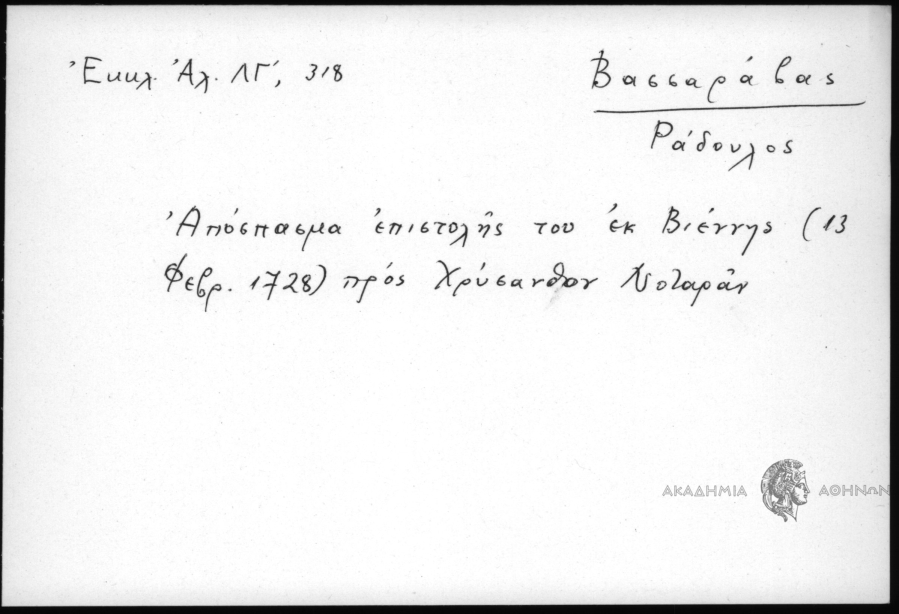 Ἐκκλ. Ἀλ. ΛΓ', 318
Βασσαράβας
Ράδουλος
Ἀπόσπασμα ἐπιστολῆς του ἐκ Βιέννης (13
Φεβρ. 1728) πρός Χρύσανθον Νοταρᾶν
ΑΚΑΔΗΜΙΑ ΑΘΗΝΩΝ